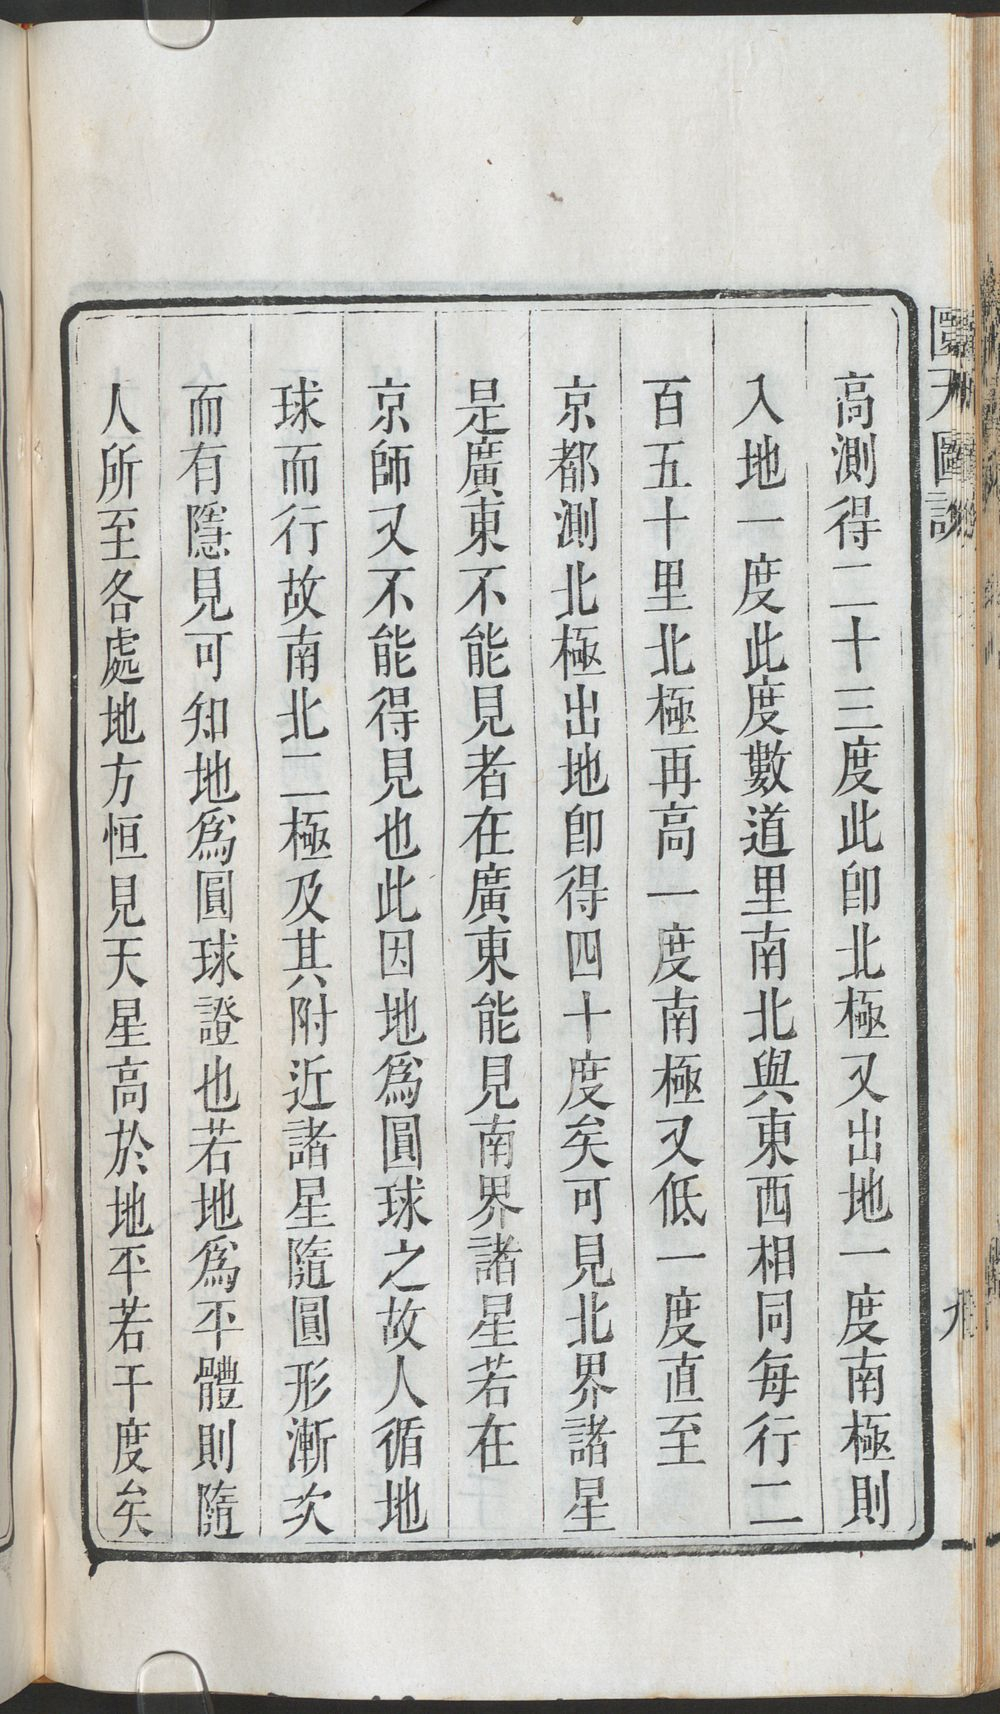 高測得二十三度此卽北極又出地一度南極則
入地一度此度數道里南北與東西相同每行二
百五十里北極再高一度南極又低一度直至
京都測北極出地卽得四十度矣可見北界諸星
是廣東不能見者在廣東能見南界諸星若在
京師又不能得見也此因地爲圓球之故人循地
球而行故南北二極及其附近諸星隨圓形漸次
而有隱見可知地爲圓球證也若地爲平體則隨
人所至各處地方恒見天星高於地平若干度矣